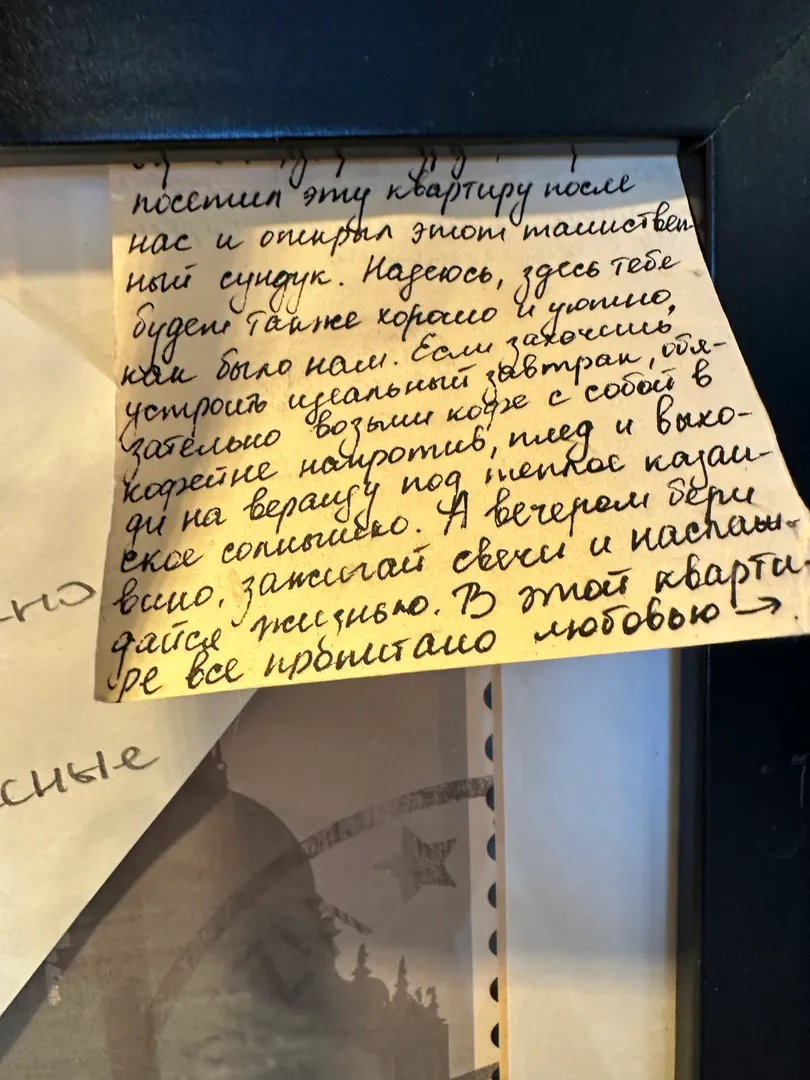 посетил эту квартиру после
нас и открыл этот таинствен
ный сундук. Надеюсь, здесь тебе
будет также хорошо и уютно,
как было нам. Если захочешь
устроить идеальный завтрак, обя-
зательно возьми кофе с собой в
кофейне напротив, плед и выхо-
ди на веранду под теплое казан-
ское солнышко. А вечером бери
вино, зажигай свечи и наслаж-
дайся жизнью. В этой кварти-
ре все пропитано любовью →
сные